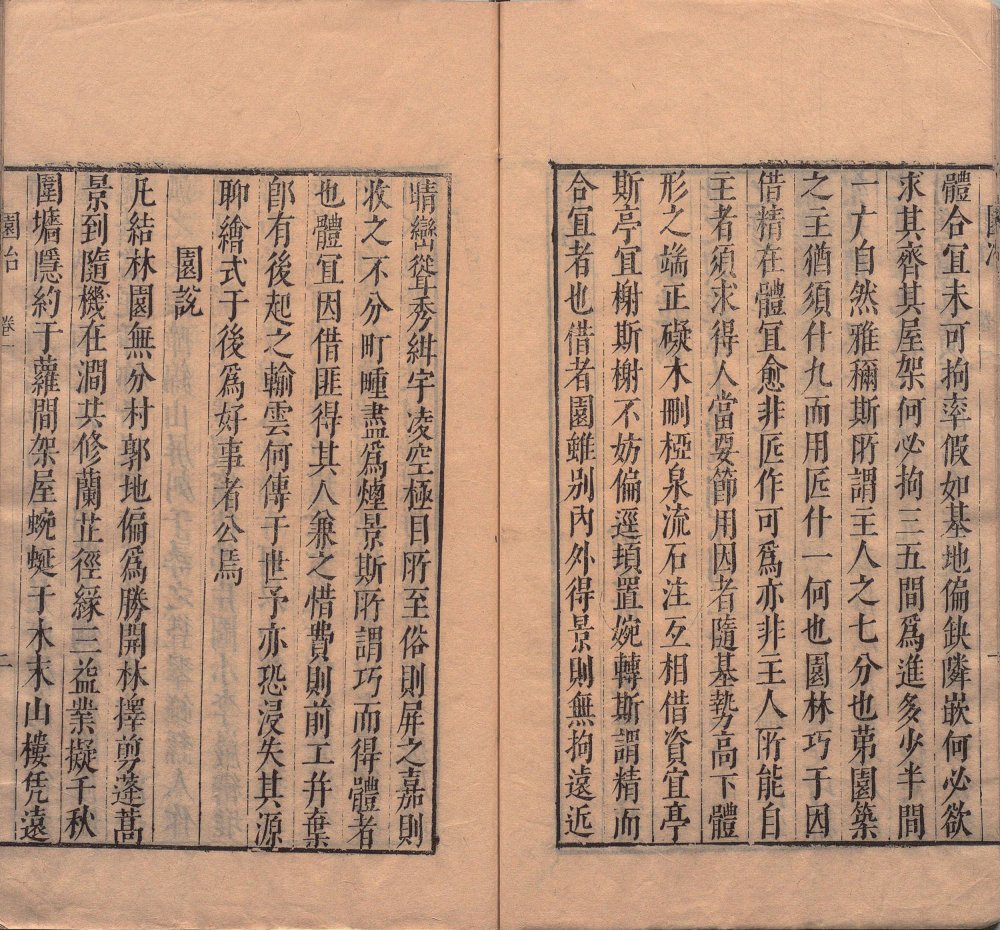 體合冝未可拘率假如基地偏缺隣嵌何必欲
求其齊其屋架何必拘三五間爲進多少半間
一广自然雅稱斯所謂主人之七分也苐園築
之主猶須什九而用匠什一何也園林巧于因
借精在體冝愈非匠作可爲亦非主人所能自
主者須求得人當要節用因者隨基勢高下體
形之端正礙木刪椏泉流石注互相借資宜亭
斯亭宜榭斯榭不妨偏逕頊置婉轉斯謂精而
合宜者也借者園雖别內外得景則無拘遠近
晴巒聳秀紺宇凌空極目所至俗則屏之嘉則
收之不分町疃盡爲煙景斯所謂巧而得體者
也體冝因借匪得其人兼之惜費則前工并棄
卽有後起之輸雲何傳于世予亦恐浸失其源
聊繪式于後爲好事者公焉
園說
凡結林園無分村郭地偏爲勝開林擇剪蓬蒿
景到隨機在澗共修蘭芷徑緣三益業擬千秋
圍墻隱約于蘿間架屋蜿蜒于木末山樓凭遠
園冶 卷一 二